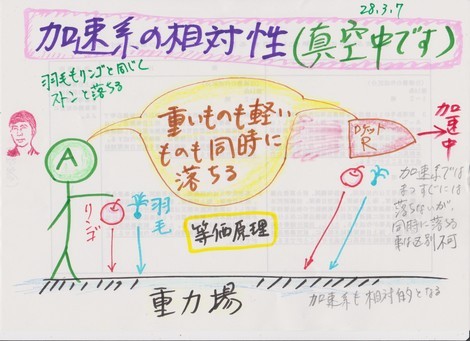 28.3.7
加速系の相対性(真空中です)
羽毛もリンゴと同じく
ストンと落ちる
重いものも軽い
ものも同時に
落ちる
ロケット
R
加速中
A
リンゴ
羽毛
等価原理
加速系では
まっすぐには
落ちないが、
同時に落ちる
事は区別不可
重力場
加速系も相対的となる